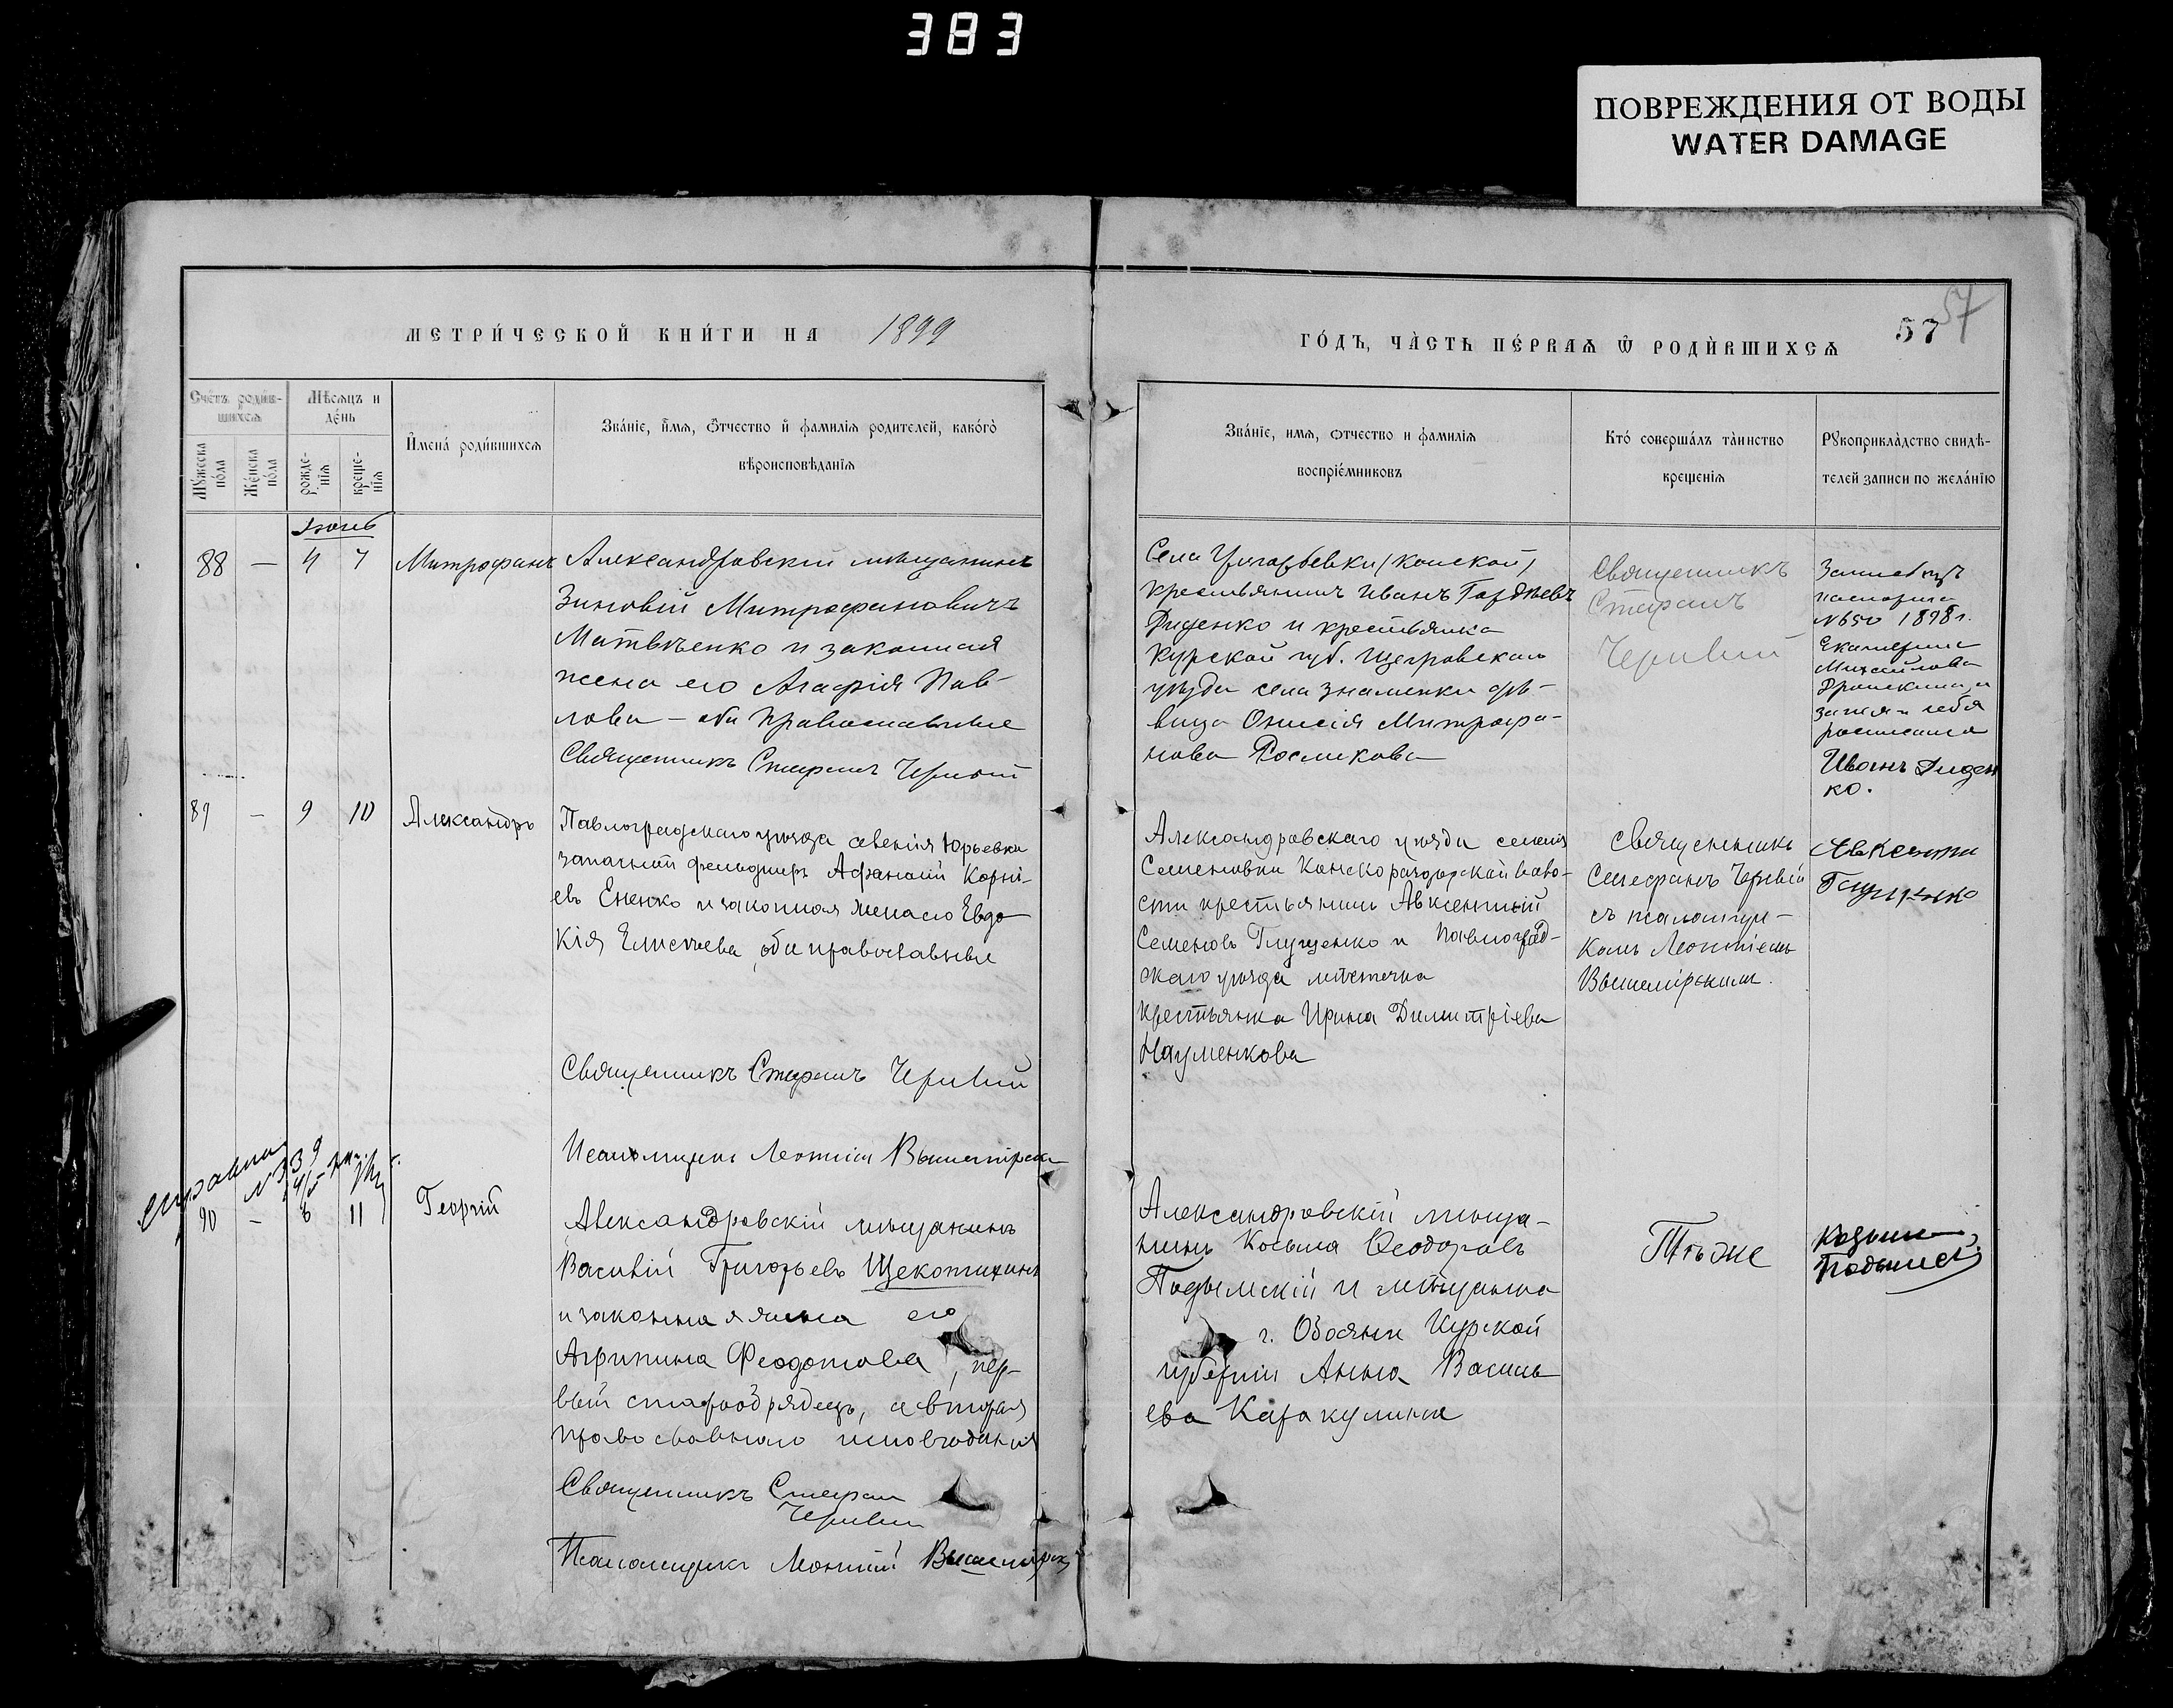 383
ПОВРЕЖДЕНИЯ ОТ ВОДЫ
WATER DAMAGE
МЕТРИ́ЧЕСКОЙ КНИ́ГИ НА 1899
ГО́ДЪ, ЧА̀СТЬ ПЕ́РВАѦ Ѿ РОДЍВШИХСѦ
57
57
Сче́тъ роди́в-
шихсѧ
Мѣ́сѧцъ и
де́нь
Мꙋ́жеска
по́ла
Же́нска
по́ла
рожде-
нїѧ
креще-
нїѧ
И҆мена́ роди́вшихсѧ
Зва́нїе, и҆́мѧ, ѻ҆́тчество и҆ фамилїѧ родителей, како́гѡ
вѣроисповѣданїѧ
Зва́нїе, имѧ, ѻтчество и фамилїѧ
воспрїе́мниковъ
Кто́ соверша́лъ та́инство
крещенїѧ
Рꙋкоприкла̀дство свидѣ́-
телей записи по жела́нїю
Іюнь
88 — 4 7
Митрофанъ
Александровскій мѣщанинъ
Зиновій Митрофановичъ
Матвѣенко и законная
жена его Агафія Пав-
лова – оба православные
Священникъ Стефанъ Червій
Села (Конской)
крестьянинъ Иванъ Гордѣевъ
Диденко и крестьянка
Курской губ. Щегровскаго
уѣзда села Знаменки дѣ-
вица Митрофа-
нова
Священникъ
Стефанъ
Червій
1898 г.
Екатерина
Михайлова
Иванъ Диден
ко.
89 — 9 10
Александръ
Павлоградскаго уѣзда селенія Юрьевки
запасный фельдшеръ Афанасій Корнѣ-
евъ Ененко и законная жена его Евдо-
кія Елисѣева, оба православные
Священникъ Стефанъ Червій
Псаломщикъ Леонтій
Александровскаго уѣзда селенія
Семеновки Конскораздорской воло-
сти крестьянинъ Авксентий
Семеновъ Глущенко и Павлоград-
скаго уѣзда мѣстечка
крестьянка Ирина Димитріева
Науменкова
Священникъ
Стефанъ Червій
съ псаломщи-
комъ Леонтіемъ
Авксенти
Глущенко
№ 339
90 — 8 11
Георгій
Александровскій мѣщанинъ
Василій Григорьевъ Щекотихинъ
и законная жена его
Агрипина Федотова, пер-
вый старообрядецъ, а вторая
православнаго исповѣданія
Священникъ Стефан
Червій
Псаломщикъ Леонтій
Александровскій мѣща-
нинъ Косьма Ѳеодоровъ
Подымскій и мѣщанка
г. Обояни Курской
губерніи Анна Василь
ева Каракулина
Тѣ же